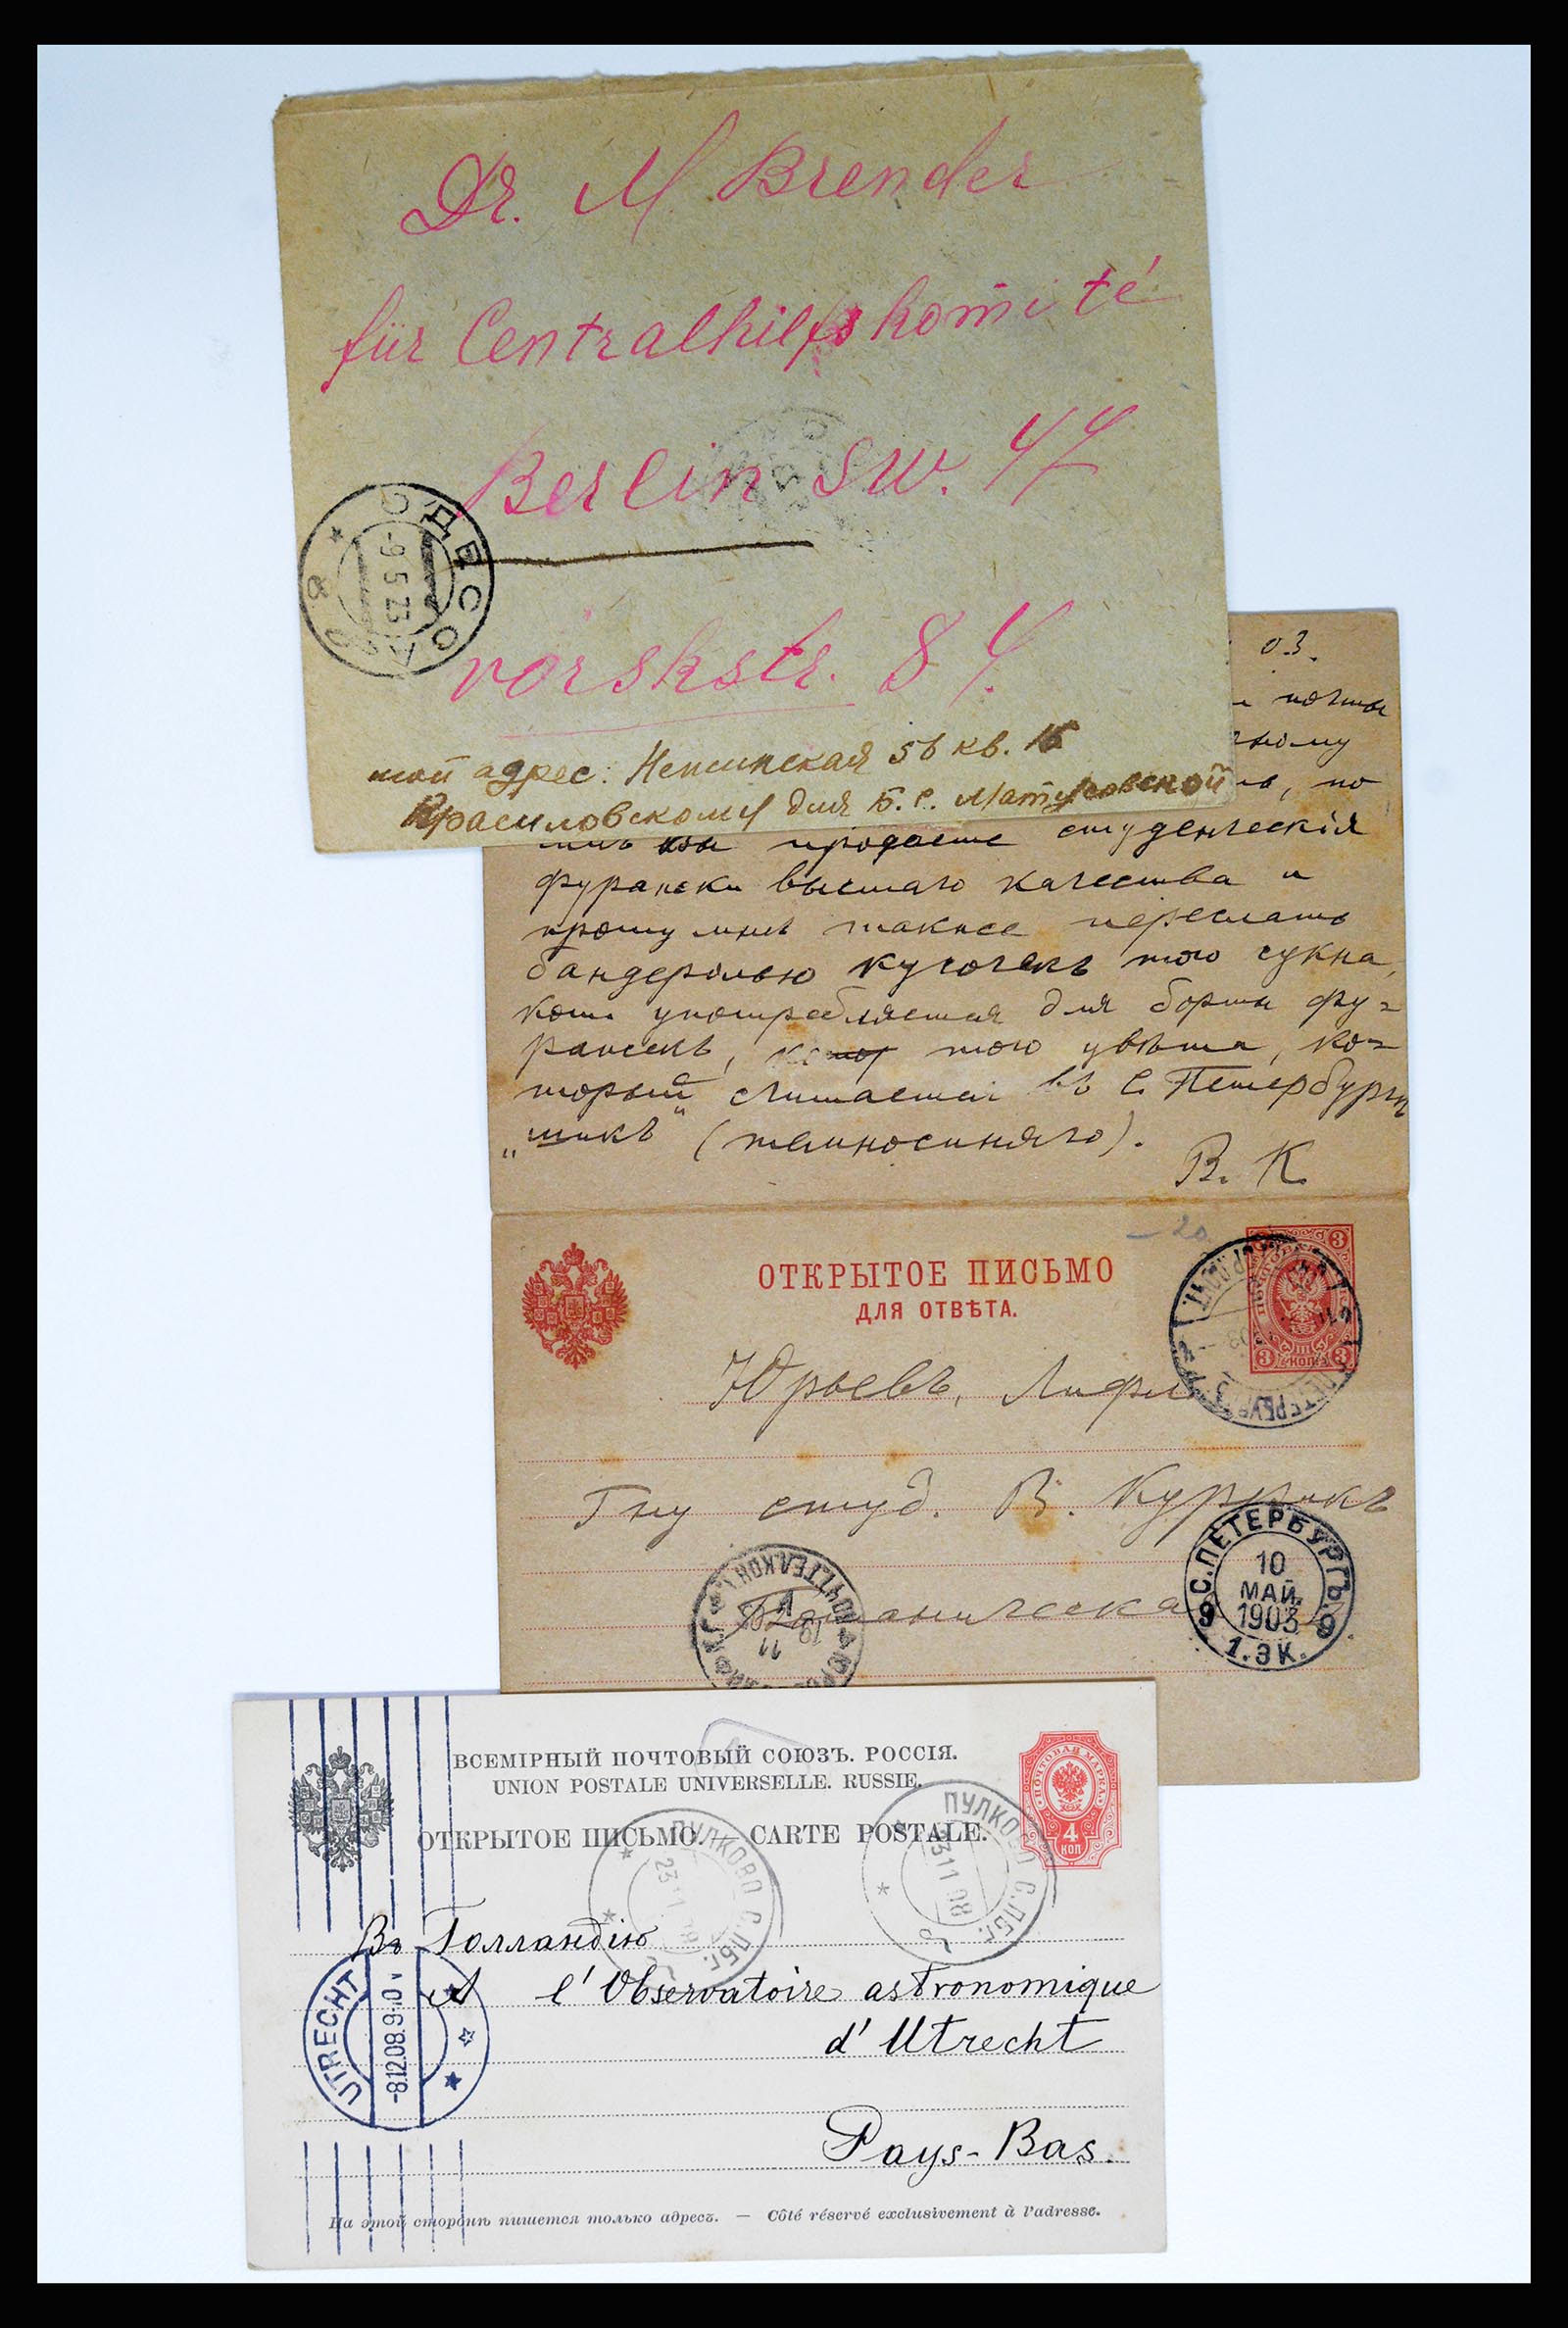 Dr. M Brender
für Centralhilfskomité
Berlin SW. 47
vorskstr. 84.
ОДЕССА
-9 5 23
мой адрес: 56 кв. 15
Красиловскому для Б. С. Матусовской
03.
почты
по
вы продаете студенческія
фуражки высшаго качества и
прошу мнѣ также переслать
бандеролью кусочекъ того сукна,
употребляется для борта фу=
ражекъ, того цвѣта, ко=
торый считается въ С. Петербургѣ
„шикъ“ (темносиняго).
В. К.
- 20
ОТКРЫТОЕ ПИСЬМО
ДЛЯ ОТВѢТА.
3 3
3 КОП. 3
Юрьевъ, Лифл
Гну студ. В. Куррикъ
С.ПЕТЕРБУРГЪ
10
МАЙ.
1903
9 9
1.ЭК.
ВСЕМІРНЫЙ ПОЧТОВЫЙ СОЮЗЪ. РОССІЯ.
UNION POSTALE UNIVERSELLE. RUSSIE.
ОТКРЫТОЕ ПИСЬМО. — CARTE POSTALE.
ПОЧТОВАЯ МАРКА
4
КОП
ПУЛКОВО С.ПБГ.
ПУЛКОВО С.ПБГ.
Въ Голландію
A l'Observatoire astronomique
d'Utrecht
UTRECHT
-8.12.08.9-10
Pays-Bas.
На этой сторонѣ пишется только адресъ. — Côté réservé exclusivement à l'adresse.